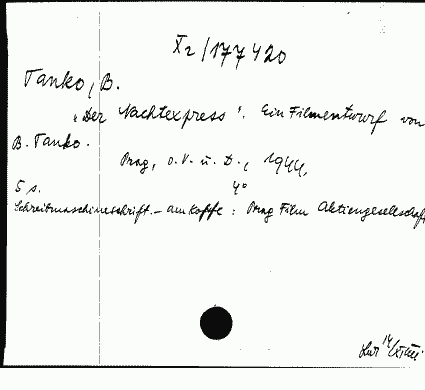 X2/177420
Tanko, B.
"Der Nachtexpress". Ein Filmentwurf von
B. Tanko.
Prag, o. V. u. D., 1944,
5 s. 4°
Schreibmaschineschrift. - am Kopfe: Prag Film Aktiengesellschaft
14/XI